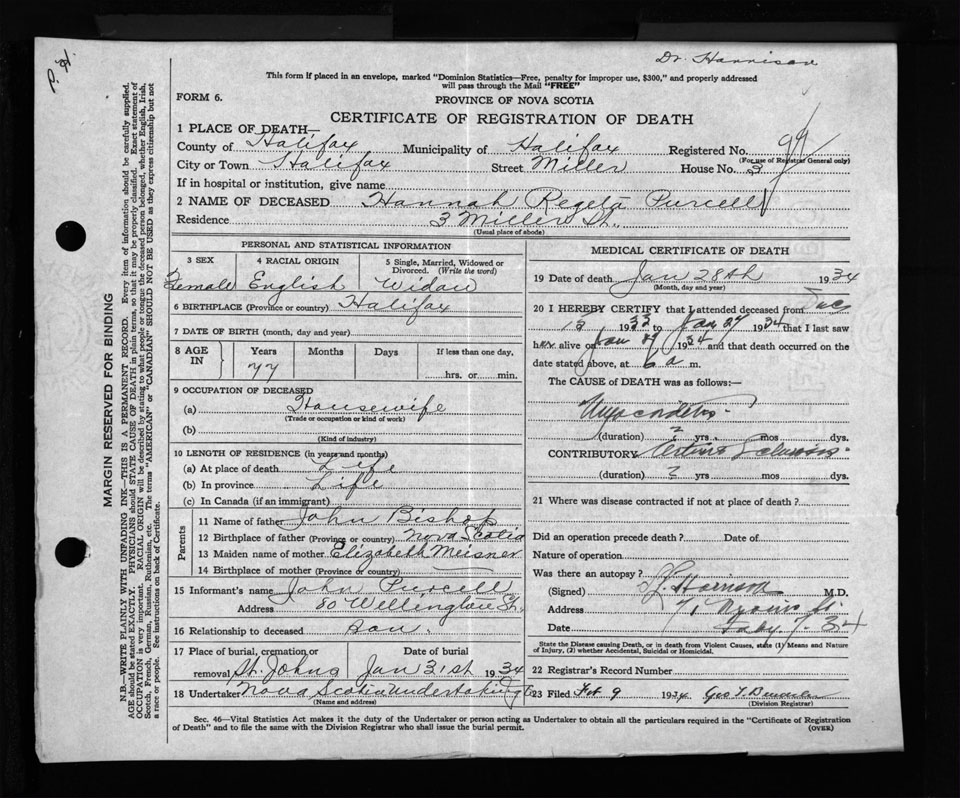 P. H.
Dr. Harrison
This form if placed in an envelope, marked "Dominion Statistics—Free, penalty for improper use, $300," and properly addressed
will pass through the Mail "FREE"
FORM 6.
PROVINCE OF NOVA SCOTIA
CERTIFICATE OF REGISTRATION OF DEATH
1 PLACE OF DEATH—
County of Halifax Municipality of Halifax Registered No. 99
(For use of Registrar General only)
City or Town Halifax Street Miller House No. 3
If in hospital or institution, give name
2 NAME OF DECEASED Hannah Regeta Purcell
Residence 3 Miller St.,
(Usual place of abode)
PERSONAL AND STATISTICAL INFORMATION
3 SEX
Female
4 RACIAL ORIGIN
English
5 Single, Married, Widowed or
Divorced. (Write the word)
Widow
6 BIRTHPLACE (Province or country) Halifax
7 DATE OF BIRTH (month, day and year)
8 AGE IN
Years Months Days If less than one day,
77 hrs. or min.
9 OCCUPATION OF DECEASED
(a) Housewife
(Trade or occupation or kind of work)
(b)
(Kind of industry)
10 LENGTH OF RESIDENCE (in years and months)
(a) At place of death Life
(b) In province Life
(c) In Canada (if an immigrant)
Parents
11 Name of father John Bishop
12 Birthplace of father (Province or country) Nova Scotia
13 Maiden name of mother Elizabeth Meisner
14 Birthplace of mother (Province or country)
15 Informant's name John Purcell
Address 80 Wellington St.
16 Relationship to deceased Son.
17 Place of burial, cremation or Date of burial
removal St. Johns Jan 31st 1934
18 Undertaker Nova Scotia Undertaking Co
(Name and address)
MEDICAL CERTIFICATE OF DEATH
19 Date of death Jan 28th 1934
(Month, day and year)
20 I HEREBY CERTIFY that I attended deceased from
12 1933 to Jan 27 1934 that I last saw
her alive on Jan 27 1934 and that death occurred on the
date stated above, at 6 a m.
The CAUSE of DEATH was as follows:—
Myocarditis
(duration) ? yrs. mos. dys.
CONTRIBUTORY Arterio Sclerosis
(duration) ? yrs. mos. dys.
21 Where was disease contracted if not at place of death?
Did an operation precede death? Date of
Nature of operation
Was there an autopsy?
(Signed) Harrison M.D.
Address 71 St.
Date Feby. 7. 34
State the Disease causing Death, or in death from Violent Causes, state (1) Means and
Nature of Injury, (2) whether Accidental, Suicidal or Homicidal.
22 Registrar's Record Number
23 Filed Feb 9 1934 Geo
(Division Registrar)
Sec. 46—Vital Statistics Act makes it the duty of the Undertaker or person acting as Undertaker to obtain all the particulars required in the "Certificate of Registration
of Death" and to file the same with the Division Registrar who shall issue the burial permit. (OVER)
MARGIN RESERVED FOR BINDING
N.B.—WRITE PLAINLY WITH UNFADING INK—THIS IS A PERMANENT RECORD. Every item of information should be carefully supplied.
AGE should be stated EXACTLY. PHYSICIANS should STATE CAUSE OF DEATH in plain terms, so that it may be properly classified. Exact statement of
OCCUPATION is very important. RACIAL ORIGIN will be described by stating to what people or tongue the deceased person belonged, whether English, Irish,
Scotch, French, German, Russian, Ruthenian, etc. The terms "AMERICAN" or "CANADIAN" SHOULD NOT BE USED as they express citizenship but not
a race or people. See instructions on back of Certificate.